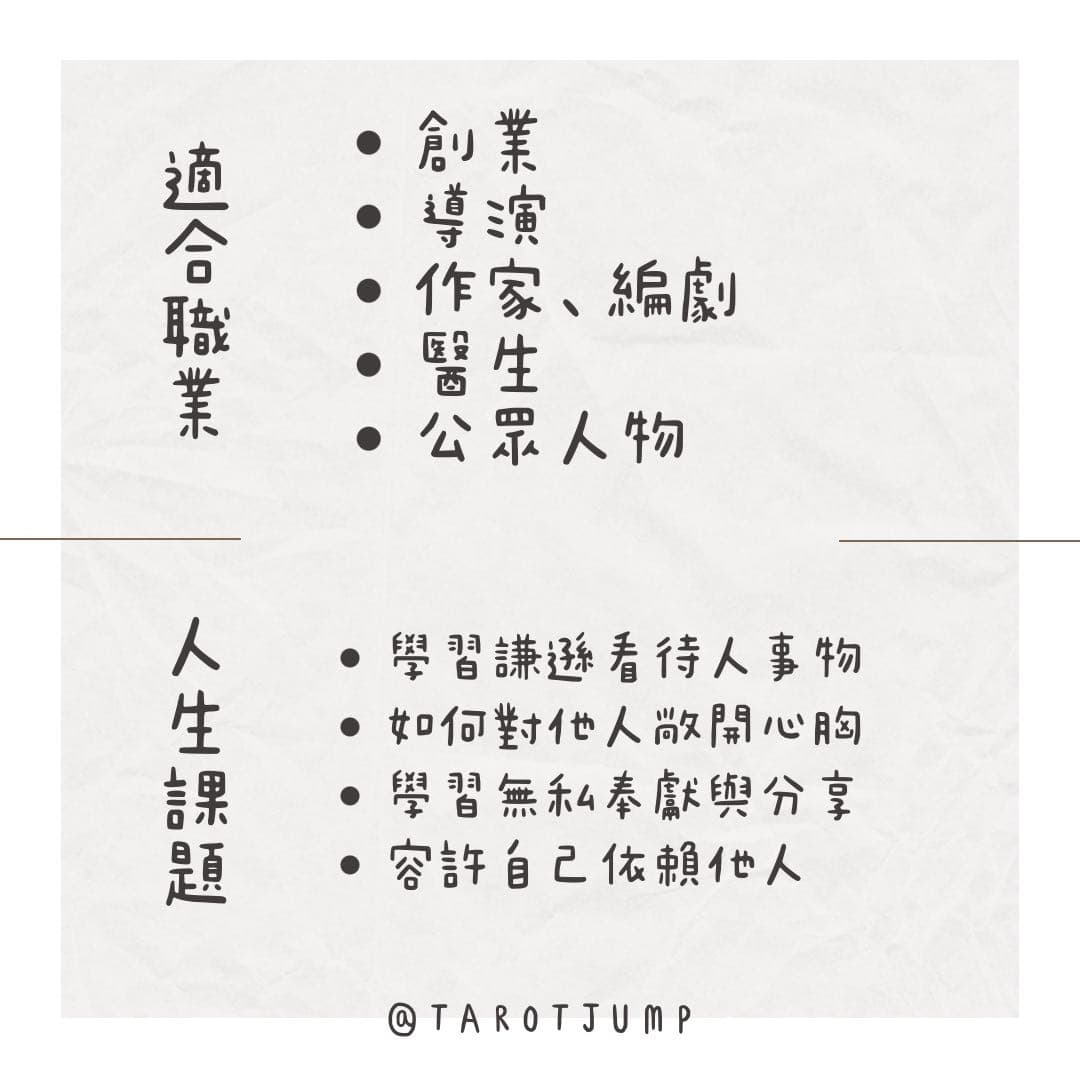 適合職業
• 創業
• 導演
• 作家、編劇
• 醫生
• 公眾人物
人生課題
• 學習謙遜看待人事物
• 如何對他人敞開心胸
• 學習無私奉獻與分享
• 容許自己依賴他人
@TAROTJUMP